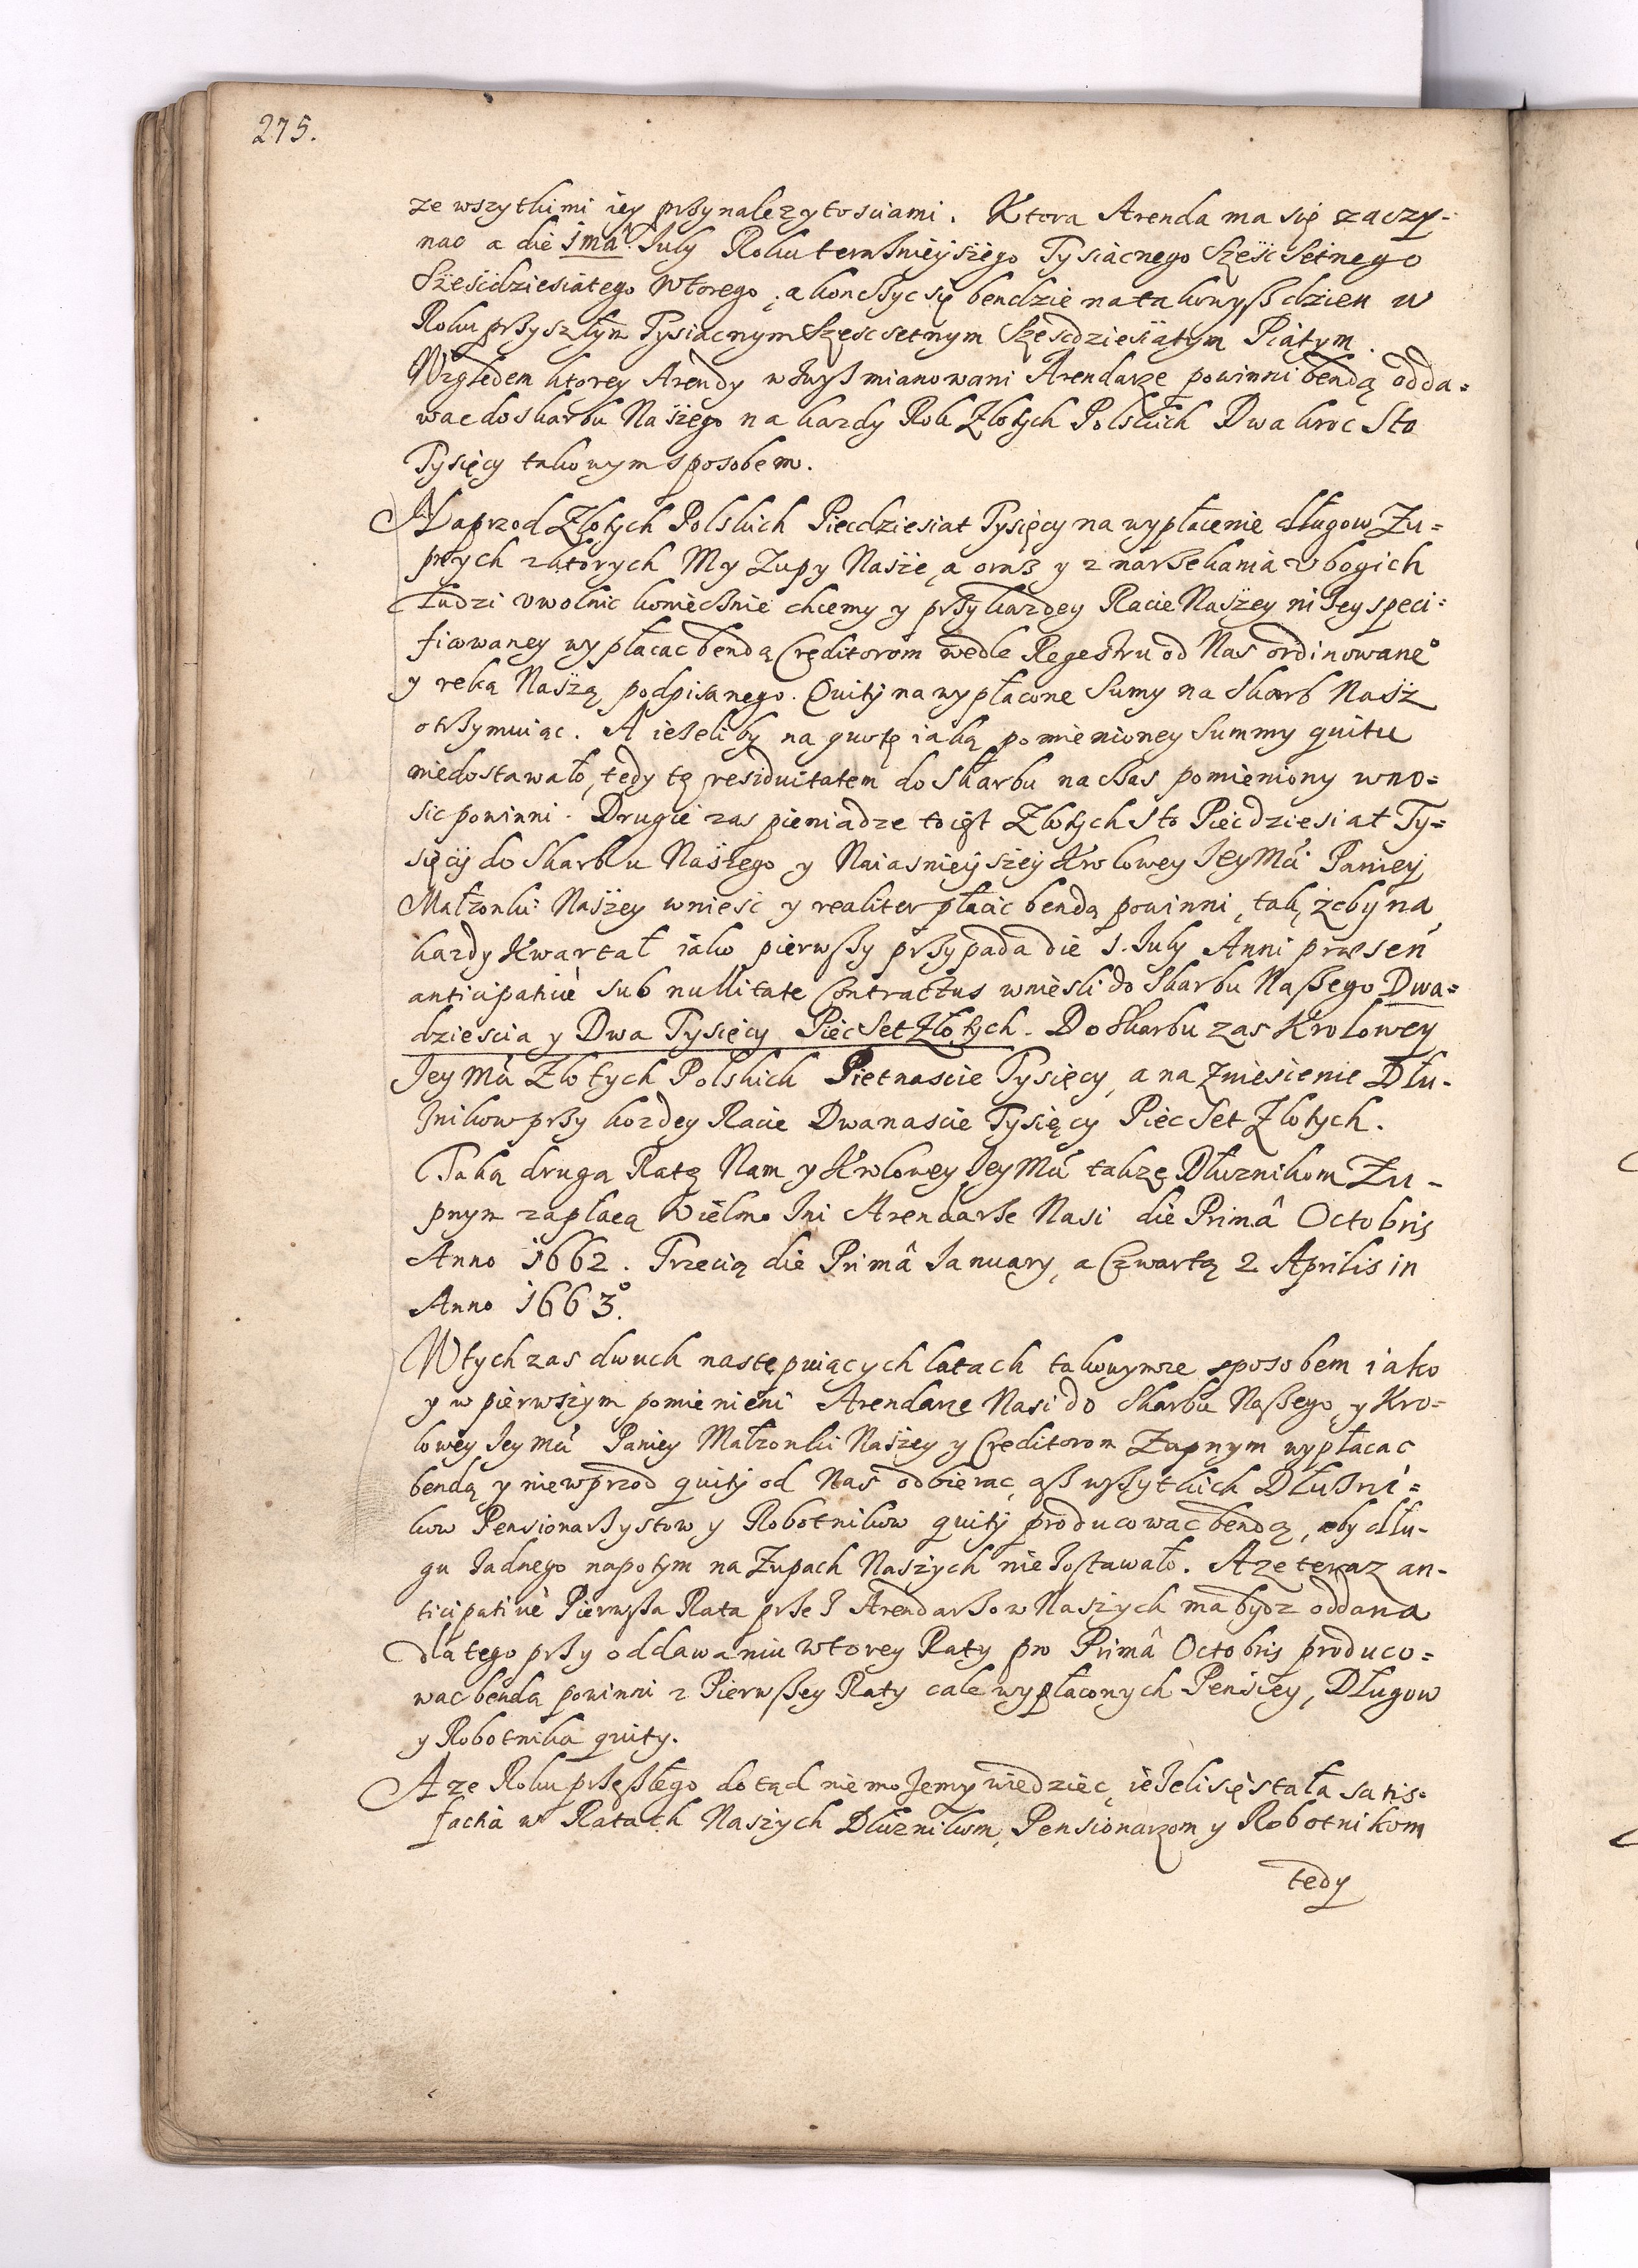 275.
ze wszytkimi iey przynalezytosciami. Ktora Arenda ma się zaczy-
nac a die 1ma July Roku teraznieyszego Tysiacnego Szesc Setnego
Szescdziesiatego Wtorego, a konczyc się bendzie na takowysz dzien w
Roku przyszłym Tysiacnym Szescsetnym Szescdziesiątym Piątym.
Względem ktorey Arendy wzwysz mianowani Arendarze powinni bendą odda=
wac do Skarbu Naszego na kazdy Rok Złotych Polskich Dwakroc Sto
Tysięcy takowym sposobem.
Naprzod Złotych Polskich Piecdziesiat Tysięcy na wypłacenie długow Zu=
pnych z ktorych My Zupy Nasze, a oraz y z narzekania vbogich
Ludzi vwolnic koniecznie chcemy y przy kazdey Racie Naszey nizey speci=
ficowaney wypłacac bendą Creditorom wedle Regestru od Nas ordinowane°
y ręką Naszą podpisanego. Quity na wypłacone Sumy na Skarb Nasz
otrzymuiąc. A iezeliby na quotę iaką pomienioney Summy quitu
niedostawało, tedy tę residuitatem do Skarbu na czas pomieniony wno=
sic powinni. Drugie zas pieniadze to iest Złotych Sto Piecdziesiat Ty=
sięcy do Skarbu Naszego y Naiasnieyszey Krolowey Jey Mći Paniey
Małzonki Naszey wniesc y realiter płacic bendą powinni, tak, zeby na
kazdy Kwartał iako pierwszy przypada die 1. July Anni præsen
anticipative sub nullitate Contractus wniesli do Skarbu Naszego Dwa=
dziescia y Dwa Tysięcy Piec Set Złotych. Do Skarbu zas Krolowey
Jey Mći Złotych Polskich Pietnascie Tysięcy, a na zniesienie Dłu-
znikow przy kozdey Racie Dwanascie Tysięcy Piec Set Złotych.
Taką drugą Ratę Nam y Krolowey Jey Mći takze Dłuznikom Zu-
pnym zapłacą Wielmozni Arendarze Nasi die Primâ Octobris
Anno 1662. Trzecią die Primâ January, a Czwartą 2. Aprilis in
Anno 1663°.
W tych zas dwuch następuiących latach takowymze sposobem iako
y w pierwszym pomienieni Arendarze Nasi do Skarbu Naszego y Kro=
lowey Jey Mći Paniey Małzonki Naszey y Creditorom Zupnym wypłacac
bendą y niewprzod quity od Nas odbierac, asz wszytkich Dłuzni=
kow Pensionarzystow y Robotnikow quity producowac bendą, aby dłu-
gu zadnego napotym na Zupach Naszych nie zostawało. A ze teraz an-
ticipative Pierwsza Rata przez Arendarzow Naszych ma bydz oddana
dla tego przy oddawaniu wtorey Raty pro Primâ Octobris produco=
wac bendą powinni z Pierwszey Raty cale wypłaconych Pensiey, Długow
y Robotnika quity.
A ze Roku przeszłego dotąd nie mozemy wiedziec, iezeli się stała satis=
factia w Ratach Naszych Dłuznikom, Pensionarzom y Robotnikom
tedy